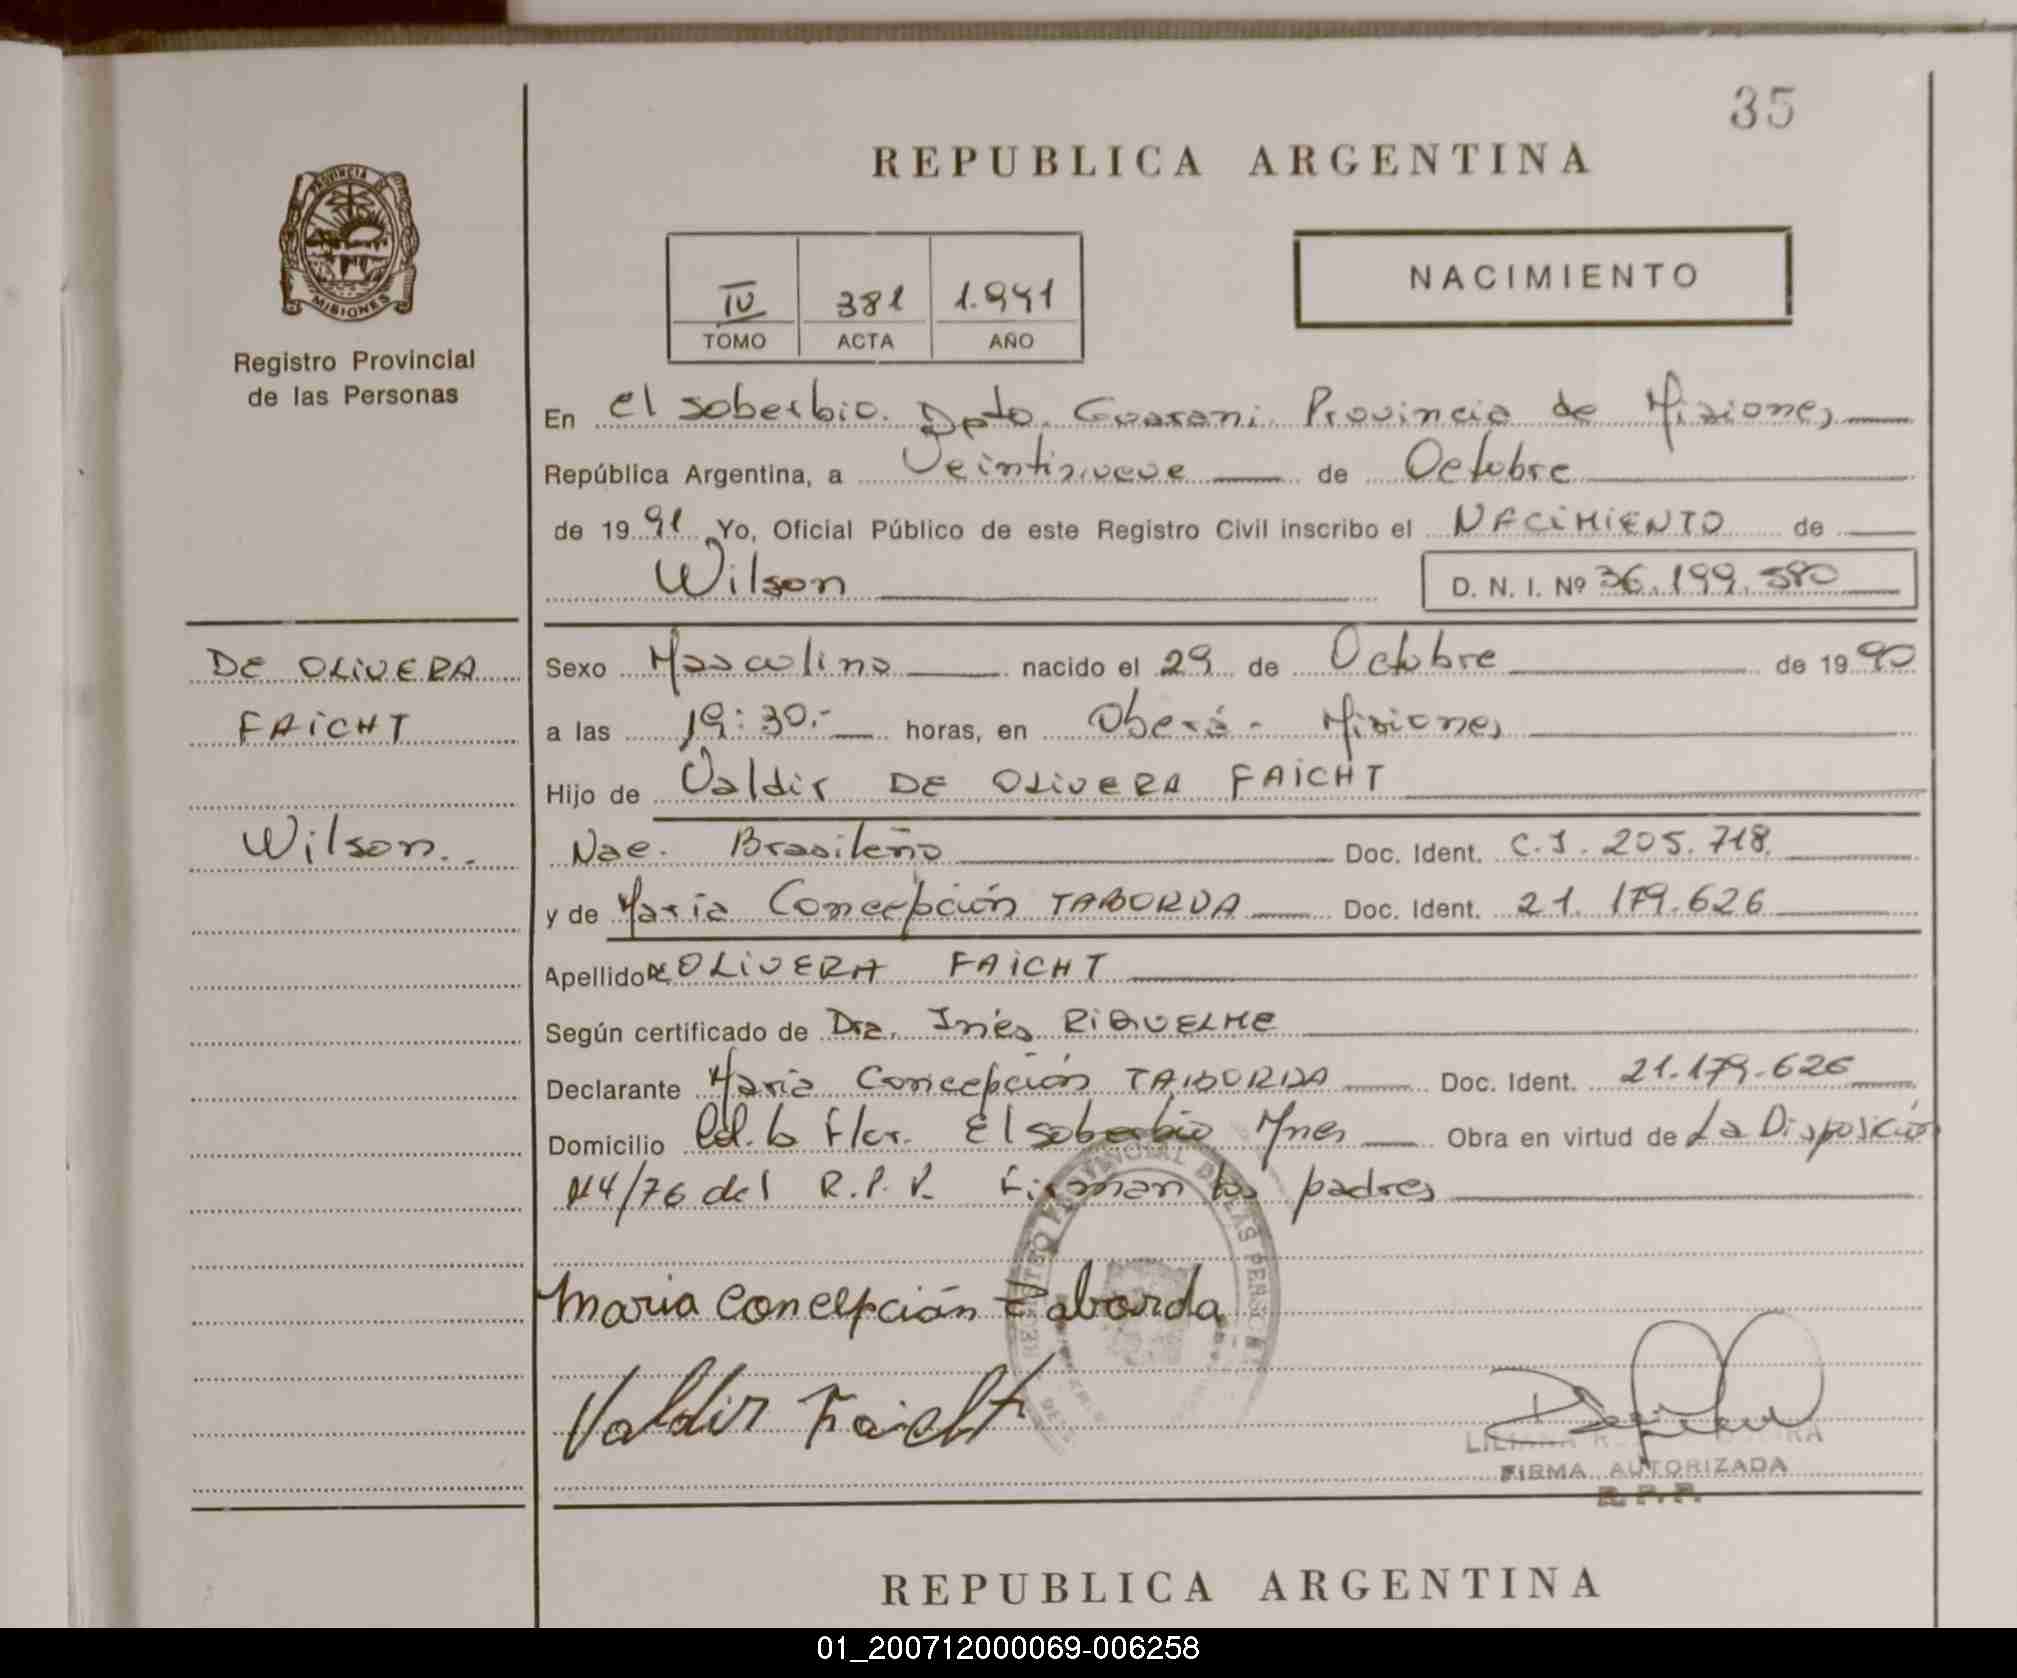 35
REPUBLICA ARGENTINA
PROVINCIA DE
MISIONES
Registro Provincial
de las Personas
IV 381 1.991
TOMO ACTA AÑO
NACIMIENTO
En el soberbio. Dpto. Guarani. Provincia de Misiones
República Argentina, a Veintinueve de Octubre
de 1991 Yo, Oficial Público de este Registro Civil inscribo el NACIMIENTO de
Wilson D. N. I. Nº 36.199.580
DE OLIVERA
FAICHT
Wilson..
Sexo Masculino nacido el 29 de Octubre de 1990
a las 19:30.- horas, en Oberá - Misiones
Hijo de Valdir DE OLIVERA FAICHT
Nac. Brasileño Doc. Ident. C.I. 205.718.
y de Maria Concepción TABORDA Doc. Ident. 21.179.626
Apellido DE OLIVERA FAICHT
Según certificado de Dra. Inés RIQUELME
Declarante Maria Concepción TABORDA Doc. Ident. 21.179.626
Domicilio Col. la Flor. El soberbio Mnes Obra en virtud de La Disposición
Nº 4/76 del R.P.P. Firman los padres
Maria Concepción Taborda
Valdir Faicht
FIRMA AUTORIZADA
R. P. P.
REPUBLICA ARGENTINA
01_200712000069-006258